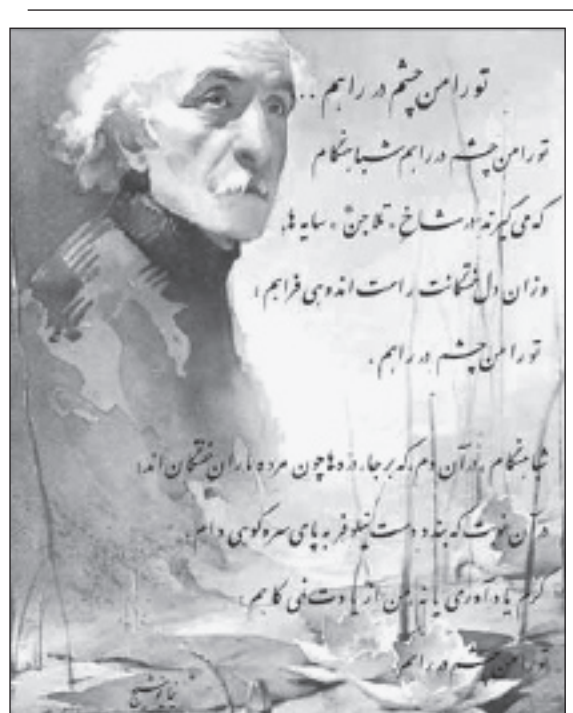 تو را من چشم در راهم ...
تو را من چشم در راهم شباهنگام
که می گیرند در شاخ « تلاجن » سایه ها
وزان دل خستگانت راست اندوهی فراهم ؛
تو را من چشم در راهم .
شباهنگام ، در آن دم ، که بر جا ، دره ها چون مرده ماران خفتگان اند ؛
در آن نوبت که بندد دست نیلوفر به پای سرو کوهی دام ،
گرم یاد آوری یا نه من از یادت نمی کاهم ؛
تو را من چشم در راهم
نیما یوشیج